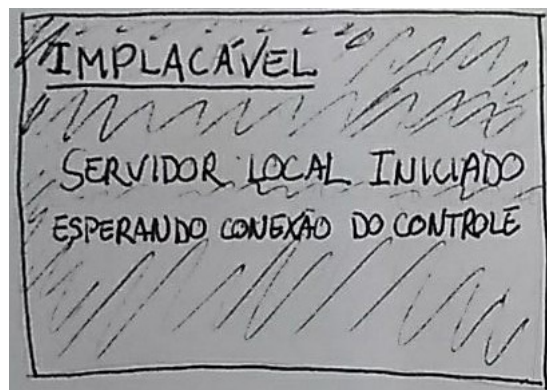 IMPLACÁVEL
SERVIDOR LOCAL INICIADO
ESPERANDO CONEXÃO DO CONTROLE